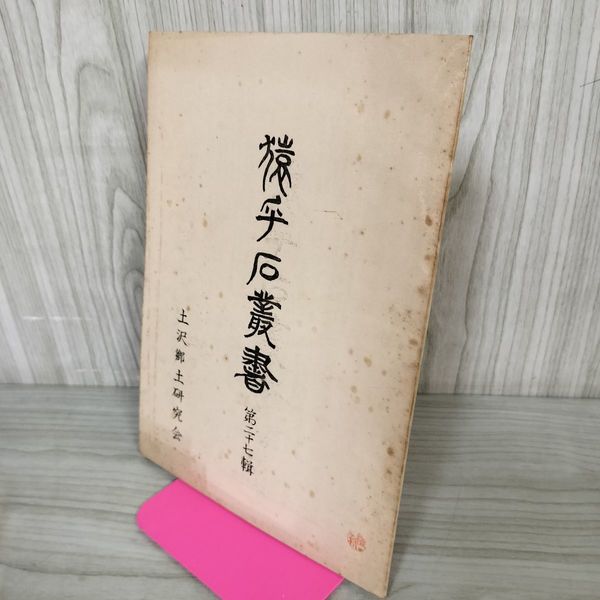 猿乎石叢書
第二十七輯
土沢郷土研究会